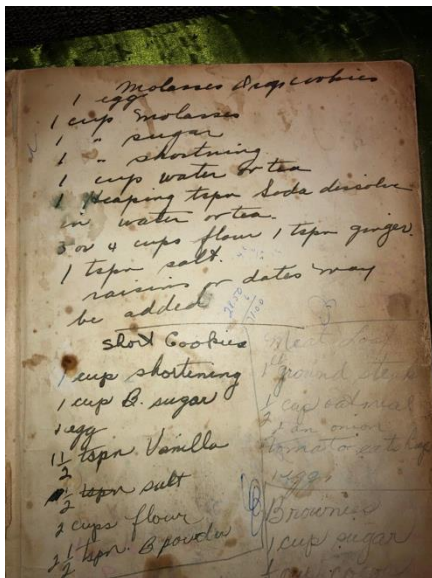 Molasses Drop cookies
1 egg
1 cup Molasses
1 " sugar
1 " shortning
1 cup water or tea
1 Heaping tspn Soda dissolve
in water or tea.
3 or 4 cups flour 1 tspn ginger.
1 tspn salt.
raisins or dates may
be added
Short Cookies
1 cup shortening
1 cup B. sugar
1 egg
1 1/2 tspn Vanilla
1/2 tspn salt
2 cups flour
2 1/2 tspn B powder
Meat Loaf
ground steak
cup oatmeal
onion
eggs
Brownies
1 cup sugar